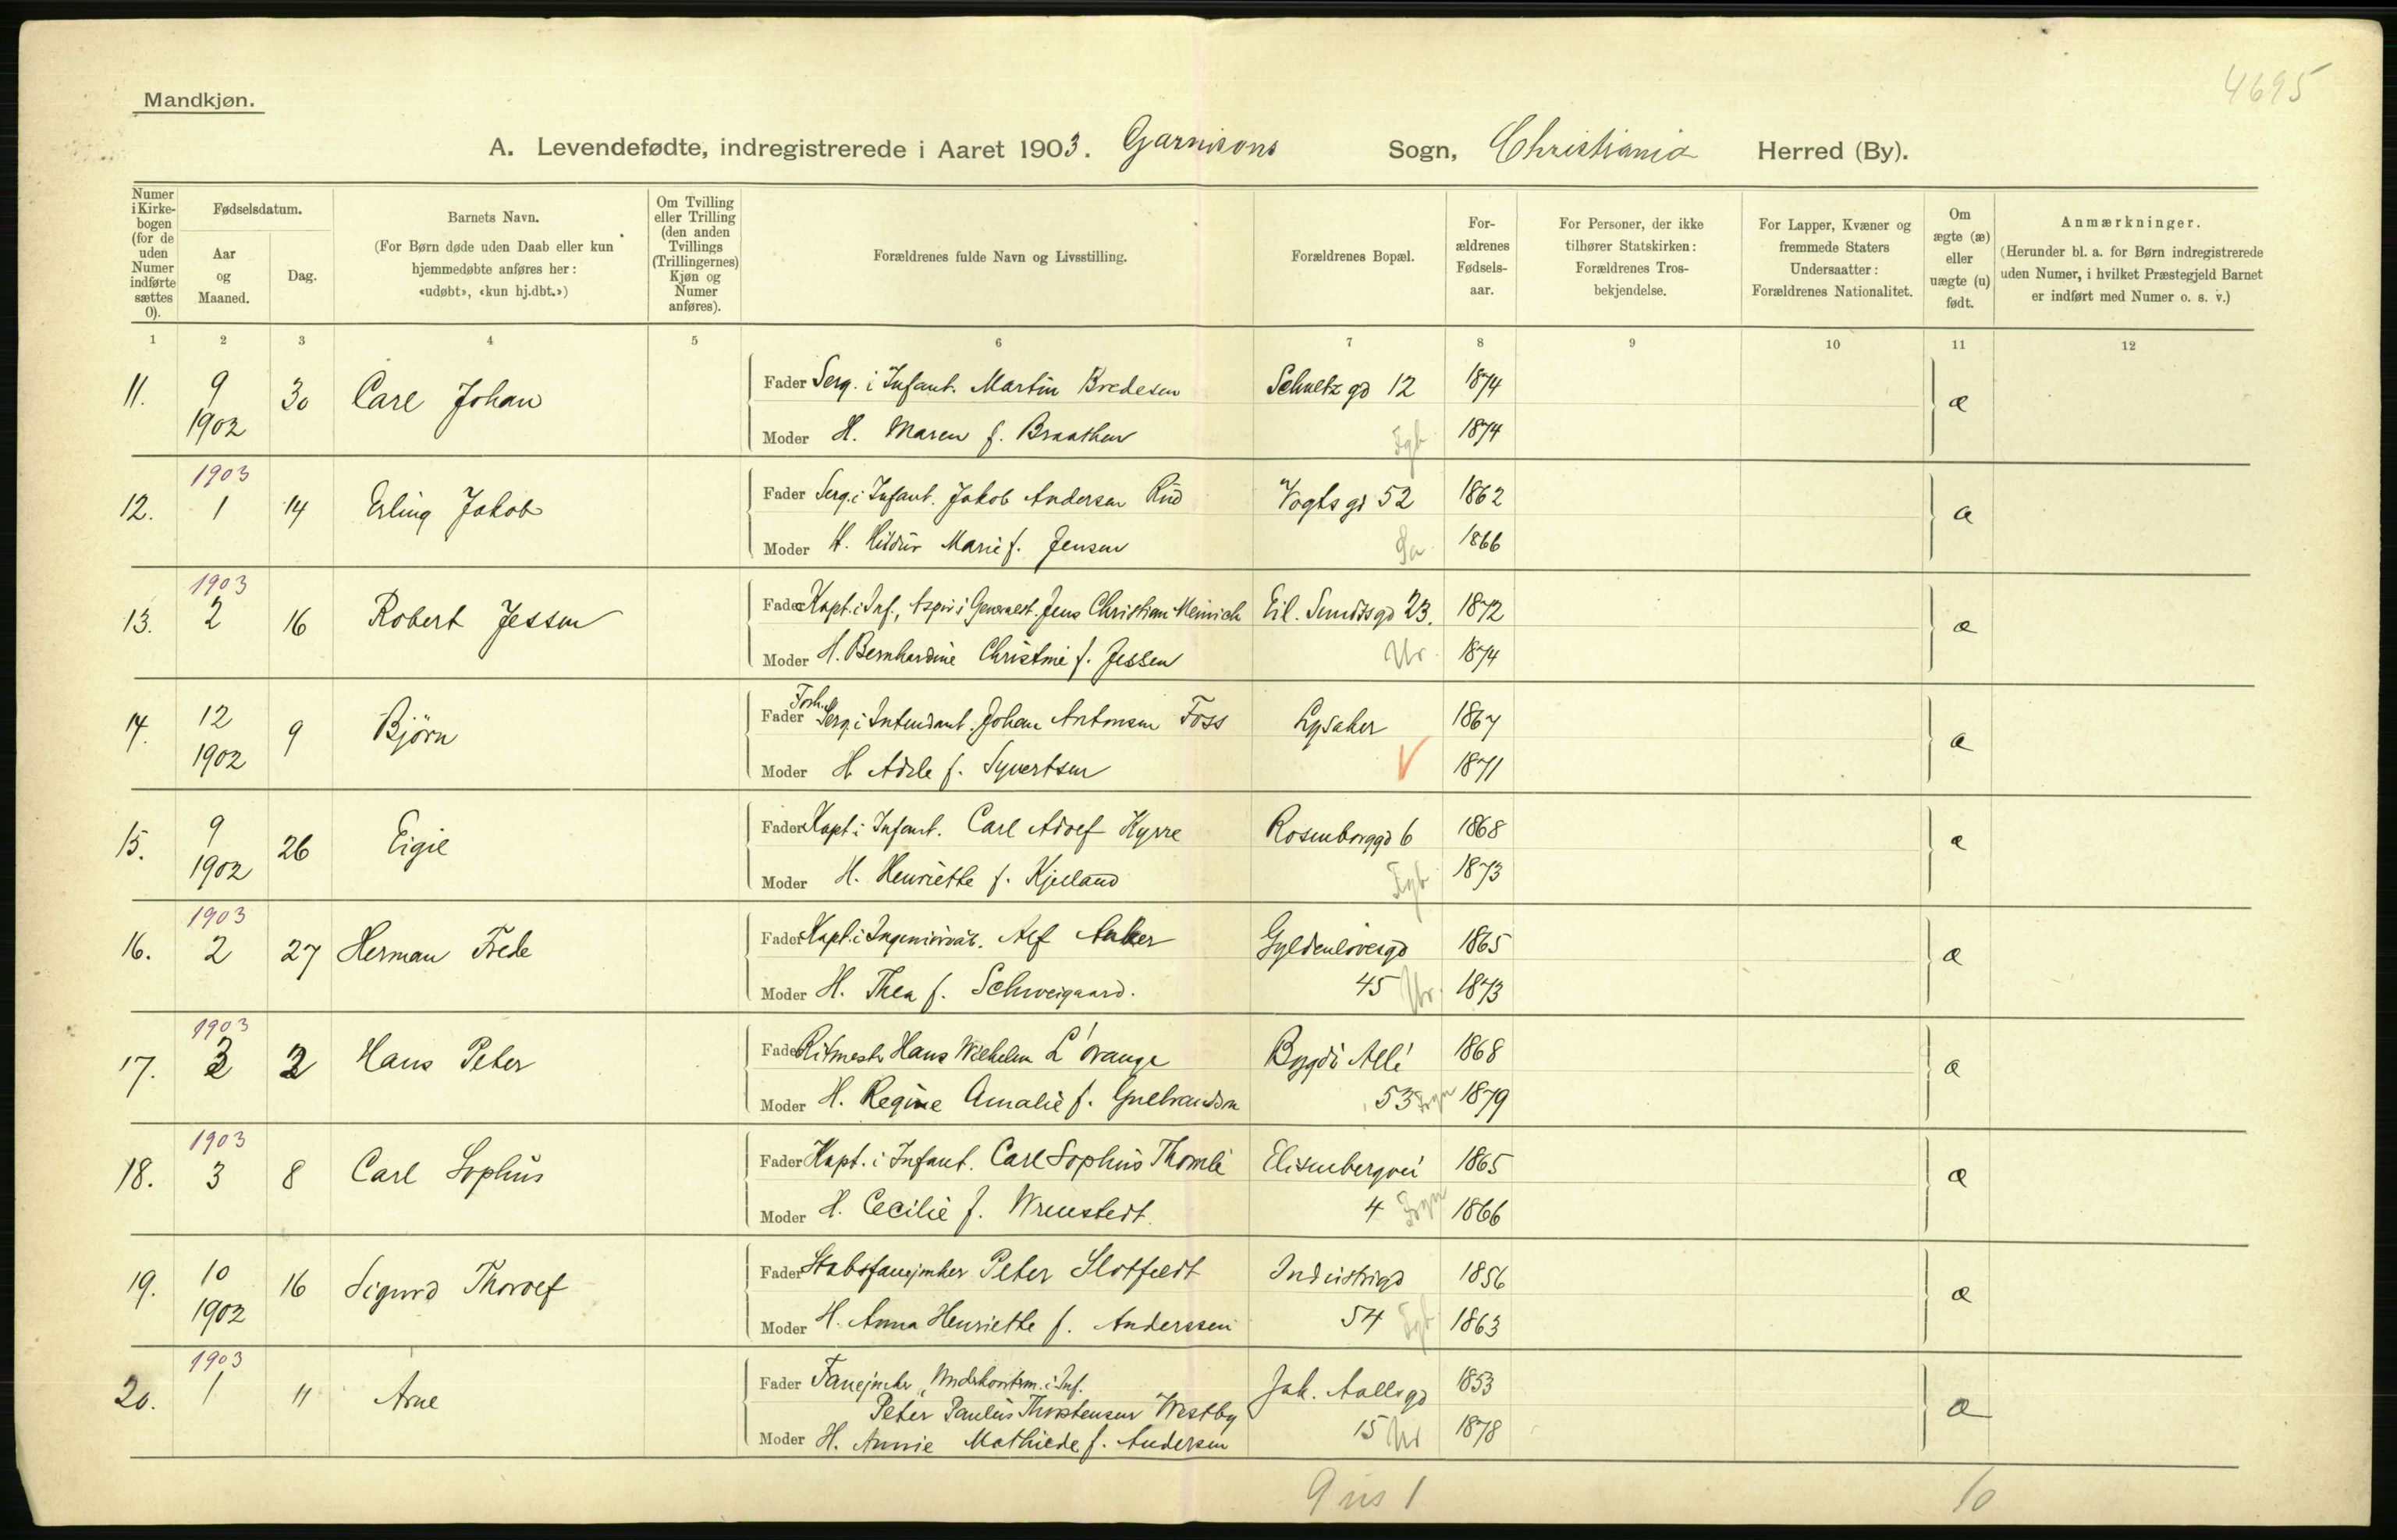 4695
Mandkjøn.
A. Levendefødte, indregistrerede i Aaret 1903. Garnisons Sogn, Christiania Herred (By).
Numer i Kirkebogen (for de uden Numer indførte sættes 0).
Fødselsdatum.
Aar og Maaned.
Dag.
Barnets Navn.
(For Børn døde uden Daab eller kun hjemmedøbte anføres her: «udøbt», «kun hj.dbt.»)
Om Tvilling eller Trilling (den anden Tvillings (Trillingernes) Kjøn og Numer anføres).
Forældrenes fulde Navn og Livsstilling.
Forældrenes Bopæl.
Forældrenes Fødselsaar.
For Personer, der ikke tilhører Statskirken: Forældrenes Trosbekjendelse.
For Lapper, Kvæner og fremmede Staters Undersaatter: Forældrenes Nationalitet.
Om ægte (æ) eller uægte (u) født.
Anmærkninger.
(Herunder bl. a. for Børn indregistrerede uden Numer, i hvilket Præstegjeld Barnet er indført med Numer o. s. v.)
1 2 3 4 5 6 7 8 9 10 11 12
11. 9 1902 30 Carl Johan
Fader Serg. i Infant. Martin Bredesen Schultzgd 12 1874 æ
Moder H. Maren f. Braathen Fgb 1874
12. 1903 1 14 Erling Jakob
Fader Serg. i Infant. Jakob Andersen Rud Vogtsgd 52 1862 æ
Moder H. Hildur Marie f. Jensen Sa 1866
13. 1903 2 16 Robert Jessen
Fader Kapt. i Inf., Aspir i Generalst. Jens Christian Meinich Eil. Sundtsgd 23. 1872 æ
Moder H. Bernhardine Christine f. Jessen Ur 1874
14. 12 1902 9 Bjørn
Fader Forh. Serg. i Intendant. Johan Antonsen Foss Lysaker 1867 æ
Moder H. Adele f. Syvertsen V 1871
15. 9 1902 26 Eigil
Fader Kapt. i Infant. Carl Adolf Kyrre Rosenborggd 6 1868 æ
Moder H. Henriette f. Kjelland Fgb 1873
16. 1903 2 27 Herman Frede
Fader Kapt. i Ingeniørvåb. Alf Anker Gyldenløvesgd 1865 æ
Moder H. Thea f. Schweigaard. 45 Ur 1873
17. 1903 3 2 Hans Peter
Fader Ritmester Hans Wilhelm L'orange Bygdø Allé 1868 æ
Moder H. Regine Amalie f. Gulbrandsen 53 Frgn 1879
18. 1903 3 8 Carl Sophus
Fader Kapt. i Infant. Carl Sophus Thomle Elisenbergvei 1865 æ
Moder H. Cecilie f. Wrenstedt. 4 Frgn 1866
19. 10 1902 16 Sigurd Thorolf
Fader Stabsfanejunker Peter Slotfeldt Industrigd 1856 æ
Moder H. Anna Henriette f. Anderssen 54 Fgb 1863
20. 1903 1 11 Arne
Fader Fanejunker, Underkvartrm. i Inf. Jak. Aallsgd 1853 æ
Peter Paulus Thorstensen Westby
Moder H. Annie Mathilde f. Andersen 15 Ur 1878
9 us 1 10